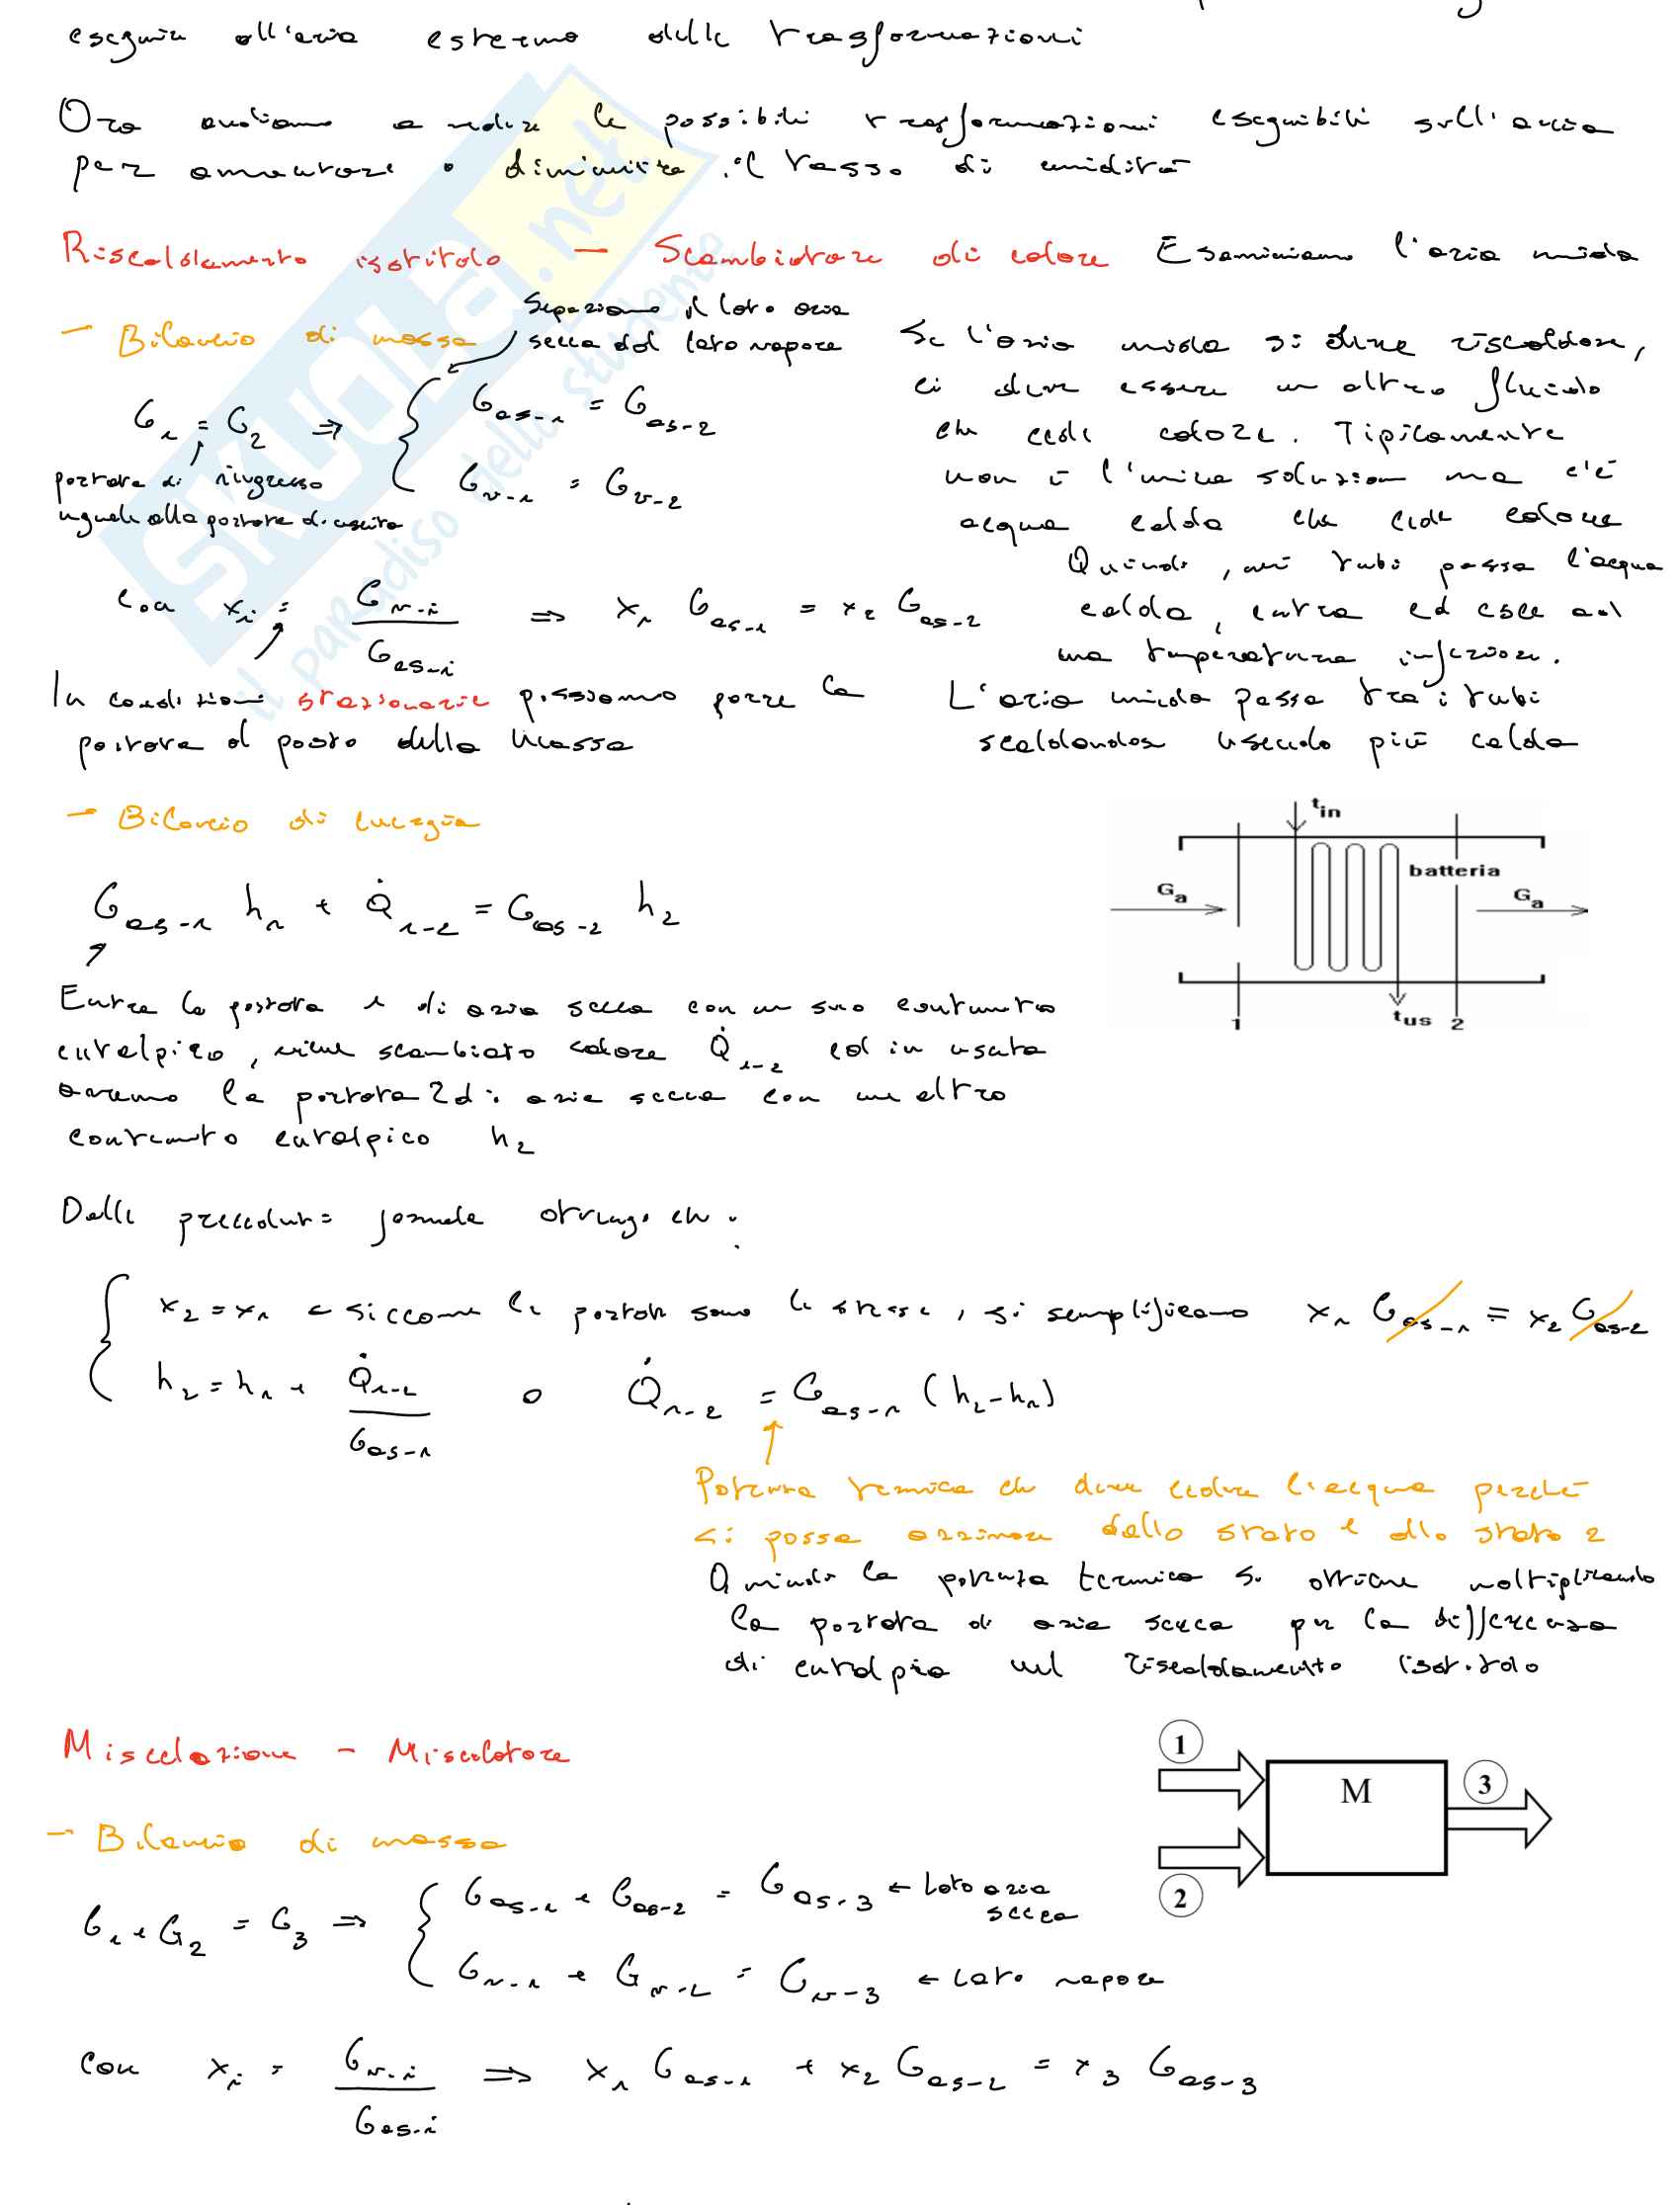 eseguire all'aria esterna delle trasformazioni
Ora andiamo a vedere le possibili trasformazioni eseguibili sull'aria
per aumentare o diminuire il tasso di umidità
Riscaldamento isotitolo - Scambiatore di calore Esaminiamo l'aria umida
- Bilancio di massa
Separiamo il lato aria
secca dal lato vapore
G₁ = G₂ ⇒ { Gas-1 = Gas-2
Gv-1 = Gv-2
portata di ingresso
uguale alla portata di uscita
con xi = Gv-i / Gas-i ⇒ x₁ Gas-1 = x₂ Gas-2
In condizioni stazionarie possiamo porre la
portata al posto della massa
Se l'aria umida si deve riscaldare,
ci deve essere un altro fluido
che cede calore. Tipicamente
non è l'unica soluzione ma c'è
acqua calda che cede calore
Quindi, nei tubi passa l'acqua
calda, entra ed esce ad
una temperatura inferiore.
L'aria umida passa tra i tubi
scaldandosi uscendo più calda
- Bilancio di energia
Gas-1 h₁ + Q̇1-2 = Gas-2 h₂
tin
batteria
Ga
Ga
1
tus
2
Entra la portata 1 di aria secca con un suo contenuto
entalpico, viene scambiato calore Q̇1-2 ed in uscita
avremo la portata 2 di aria secca con un altro
contenuto entalpico h₂
Dalle precedenti formule ottengo che:
{ x₂ = x₁ ← siccome le portate sono le stesse, si semplificano x₁ Gas-1 = x₂ Gas-2
h₂ = h₁ + Q̇1-2 / Gas-1 o Q̇1-2 = Gas-1 (h₂-h₁)
Potenza termica che deve cedere l'acqua perché
si possa arrivare dallo stato 1 allo stato 2
Quindi la potenza termica si ottiene moltiplicando
la portata di aria secca per la differenza
di entalpia nel riscaldamento isotitolo
Miscelazione - Miscelatore
1
M
3
2
- Bilancio di massa
G₁ + G₂ = G₃ ⇒ { Gas-1 + Gas-2 = Gas-3 ← Lato aria
secca
Gv-1 + Gv-2 = Gv-3 ← Lato vapore
con xi = Gv-i / Gas-i ⇒ x₁ Gas-1 + x₂ Gas-2 = x₃ Gas-3
SKUOLA.net
il paradiso dello studente